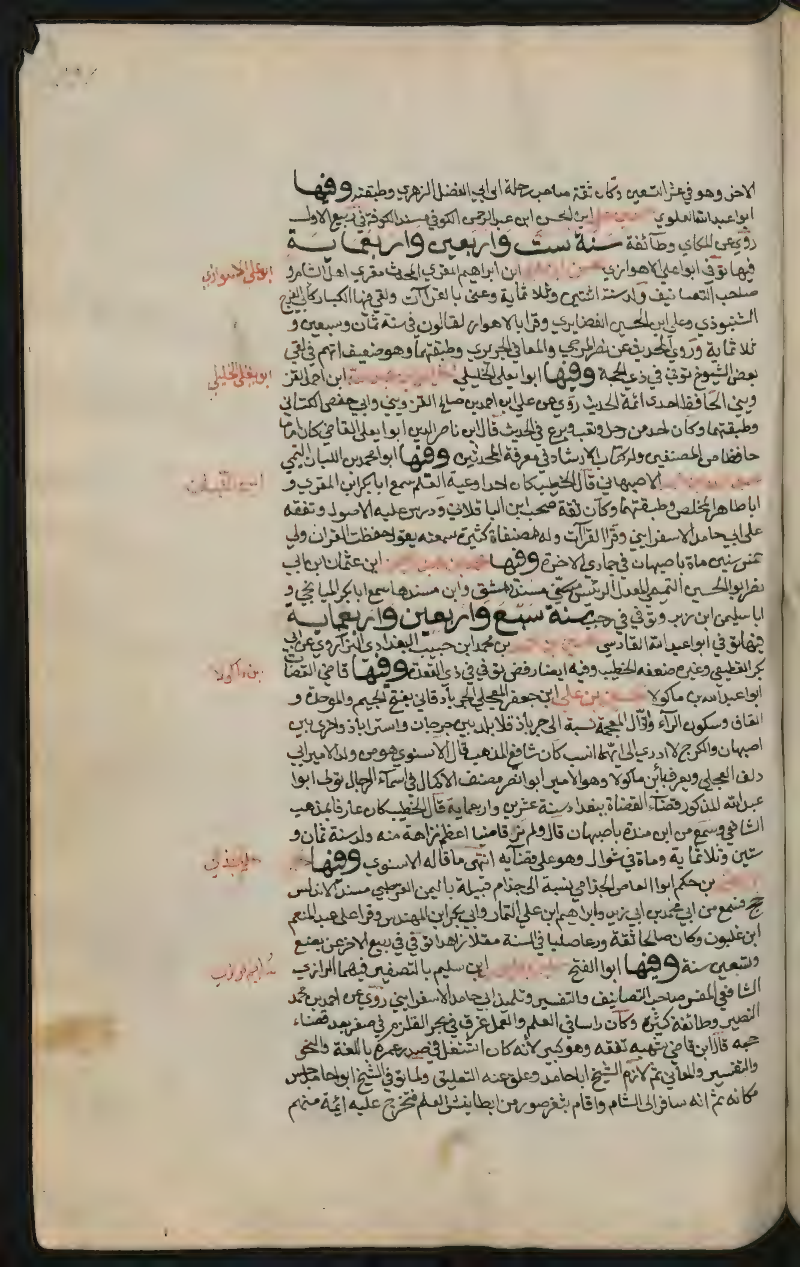 الاخر وهو في عشر التسعين وكان ثقة صاحب رحلة الى ابي الفضل الزهري وطبقته وفيها
ابو عبد الله العلوي ابن الحسن ابن عبد الرحمن الكوفي مسند الكوفة في ربيع الاول
روى عن البكاي وطائفة سنة ست واربعين واربعماية
فيها توفي ابو علي الاهوازي ابن ابراهيم المقري المحدث مقري اهل الشام و
ابو علي الاهوازي
صاحب التصانيف ولد سنة اثنتين وثلاثماية وعني بالقراآت ولقي فيها الكبار كابي الفرج
الشنبوذي وعلي ابن الحسين الغضايري وقرا بالاهواز لقالون في سنة ثمان وسبعين و
ثلاثماية وروى الحديث عن نصر المرجي والمعافى الجريري وطبقتهما وهو ضعيف اتهم في لقي
بعض الشيوخ توفي في ذي الحجة وفيها ابو يعلى الخليلي ابن احمد القز
ابو يعلى الخليلي
ويني الحافظ احد ائمة الحديث روى عن علي ابن احمد بن صالح القزويني وابي حفص الكتاني
وطبقتهما وكان احد من رحل وتعب وبرع في الحديث قال ابن ناصر الدين ابو يعلى القاضي كان اماما
حافظا من المصنفين وله كتاب الارشاد في معرفة المحدثين وفيها ابو محمد بن اللبان التيمي
الاصبهاني قال الخطيب كان احد اوعية العلم سمع ابا بكر ابن المقري و
ابا طاهر المخلص وطبقتهما وكان ثقة صحب ابن الباقلاني ودرس عليه الاصول وتفقه
على ابي حامد الاسفرايني وقرا القرآت وله مصنفاة كثيرة سمعته يقول حفظت القران ولي
خمس سنين مات باصبهان في جمادى الاخرة وفيها ابن عثمان ابن ابي
نصر ابو الحسين التميمي المعدل الرئيس مسند دمشق وابن مسندها سمع ابا بكر الميانجي و
ابا سليمن ابن زبر وتوفي في رجب سنة سبع واربعين واربعماية
فيها توفي ابو عبد الله القادسي بن محمد ابن حبيب البغدادي البزار روى عن ابي
بكر القطيعي وغيره ضعفه الخطيب وفيه ايضا رفض توفي في ذي القعدة وفيها قاضي القضاة
بن ماكولا
ابو عبد الله بن ماكولا حسين بن علي ابن جعفر العجلي الجرباذقاني بفتح الجيم والموحدة و
القاف وسكون الرآء والذال المعجمة نسبة الى جرباذقان بلد بين جرجان واستراباذ واخرى بين
اصبهان والكرج لا ادري الى ايتهما انسب كان شافعي المذهب قال الاسنوي هو من ولد الامير ابي
دلف العجلي ويعرف بابن ماكولا وهو الامير ابو نصر مصنف الاكمال في اسماء الرجال تولى ابو
عبد الله المذكور قضاء القضاة ببغداد سنة عشرين واربعماية قال الخطيب كان عارفا بمذهب
الشافعي وسمع من ابن مندة باصبهان قال ولم نر قاضيا اعظم نزاهة منه ولد سنة ثمان و
ستين وثلاثماية ومات في شوال وهو على قضائه انتهى ما قاله الاسنوي وفيها
بن حكم ابو العاص الجذامي نسبة الى جذام قبيلة باليمن القرطبي مسند الاندلس
حج فسمع من ابي محمد بن ابي زيد وابراهيم ابن علي التمار وابي بكر ابن المهندس وقرا على عبد المنعم
ابن غلبون وكان صالحا ثقة ورعا صليبا في السنة مقلا زاهدا توفي في ربيع الاخر عن بضع
وتسعين سنة وفيها ابو الفتح ابن سليم بالتصغير فيهما الرازي
الشافعي المفسر صاحب التصانيف والتفسير وتلميذ ابي حامد الاسفرايني روى عن احمد بن محمد
النصير وطائفة كثيرة وكان راسا في العلم والعمل غرق في بحر القلزم في صفر بعد قضاء
حجه قال ابن قاضي شهبه تفقه وهو كبير لانه كان اشتغل في صدر عمره باللغة والنحو
والتفسير والمعاني ثم لازم الشيخ ابا حامد وعلق عنه التعليق ولما توفي الشيخ ابو حامد جلس
مكانه ثم انه سافر الى الشام واقام بثغر صور مرابطا ينشر العلم فتخرج عليه ائمة منهم